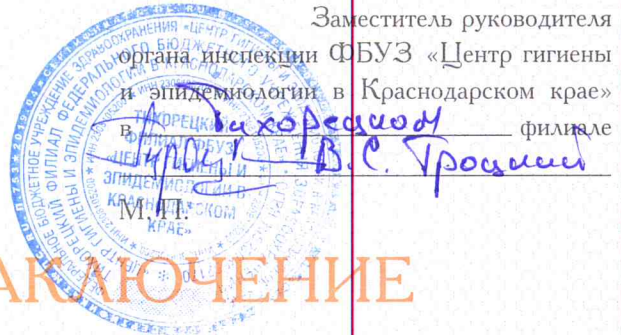 Заместитель руководителя
органа инспекции ФБУЗ «Центр гигиены
и эпидемиологии в Краснодарском крае»
в Тихорецком филиале
В.С. Троцкий
М.П.
ТИХОРЕЦКИЙ
ФИЛИАЛ ФБУЗ
«ЦЕНТР ГИГИЕНЫ И
ЭПИДЕМИОЛОГИИ В
КРАСНОДАРСКОМ
КРАЕ»
АКЛЮЧЕНИЕ